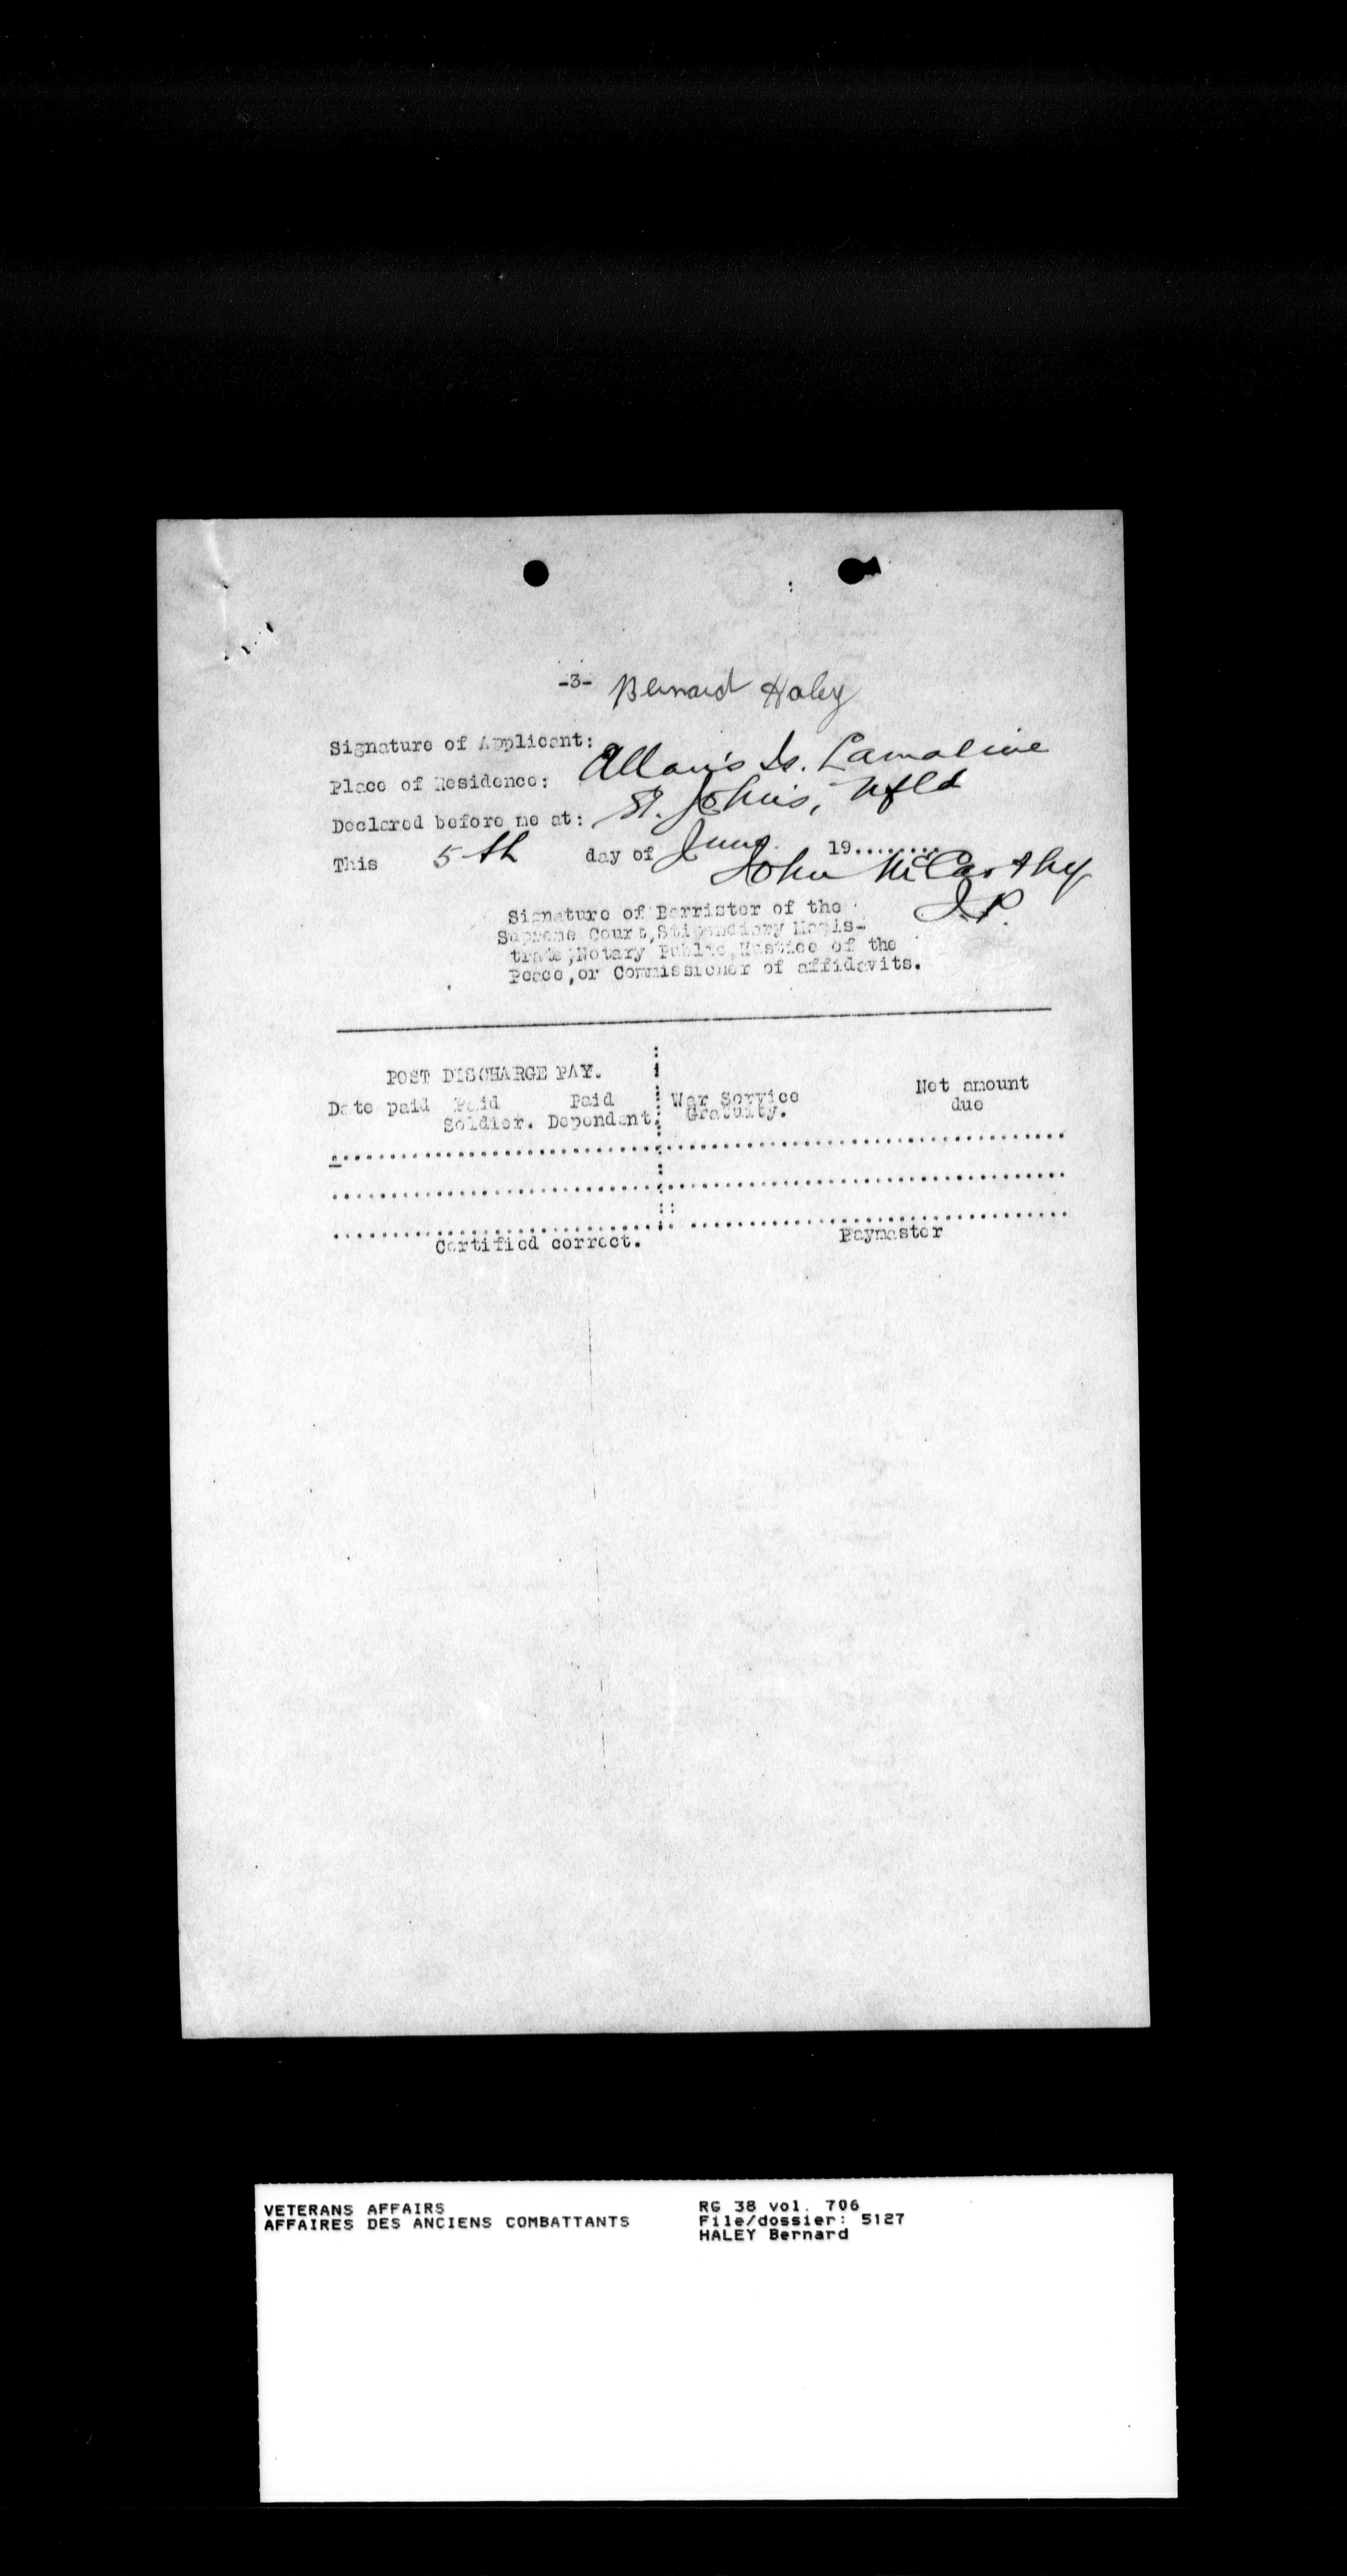 -3- Bernard Haley
Signature of Applicant:
Place of Residence: Allan's Is. Lamaline
Declared before me at: St. John's, Nfld
This 5th day of June 19.........
John McCarthy
J.P.
Signature of Barrister of the
Supreme Court,Stipendiary Magis-
trate,Notary Public,Justice of the
Peace,or Commissioner of affidavits.
POST DISCHARGE PAY.
Date paid Paid Soldier. Paid Dependent. War Service Gratuity. Net amount due
Certified correct. Paymaster
VETERANS AFFAIRS RG 38 vol. 706
AFFAIRES DES ANCIENS COMBATTANTS File/dossier: 5127
HALEY Bernard